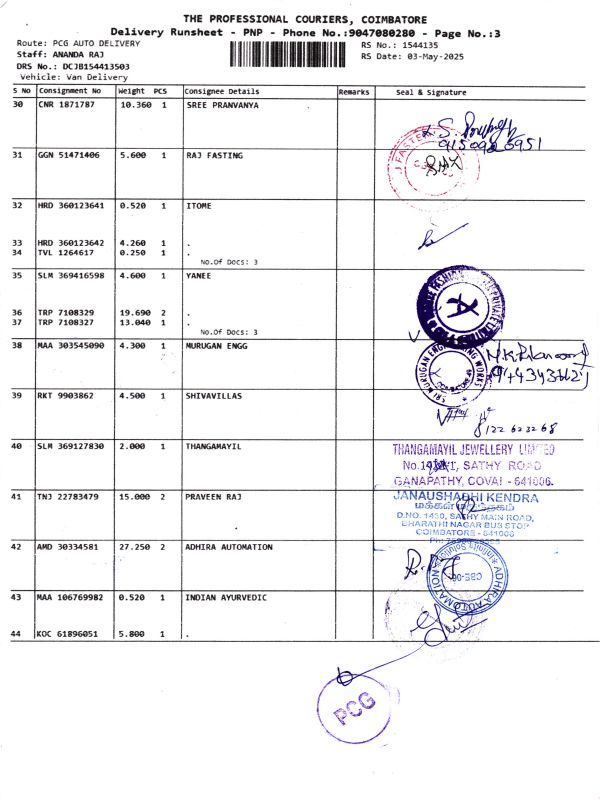 THE PROFESSIONAL COURIERS, COIMBATORE
Delivery Runsheet - PNP - Phone No.:9047080280 - Page No.:3
Route: PCG AUTO DELIVERY
RS No.: 1544135
Staff: ANANDA RAJ
RS Date: 03-May-2025
DRS No.: DCJB154413503
Vehicle: Van Delivery
S No Consignment No Weight PCS Consignee Details Remarks Seal & Signature
30 CNR 1871787 10.360 1 SREE PRANVANYA
31 GGN 51471406 5.600 1 RAJ FASTING
J FASTE
32 HRD 360123641 0.520 1 ITOME
33 HRD 360123642 4.260 1 .
34 TVL 1264617 0.250 1 .
No.Of Docs: 3
35 SLM 369416598 4.600 1 YANEE
36 TRP 7108329 19.690 2 .
37 TRP 7108327 13.040 1 .
No.Of Docs: 3
38 MAA 303545090 4.300 1 MURUGAN ENGG
SRI MURUGAN ENGINEERING WORKS
39 RKT 9903862 4.500 1 SHIVAVILLAS
8122623268
40 SLM 369127830 2.000 1 THANGAMAYIL
THANGAMAYIL JEWELLERY LIMITED
SATHY ROAD
GANAPATHY, COVAI - 641006.
41 TNJ 22783479 15.000 2 PRAVEEN RAJ
JANAUSHADHI KENDRA
மக்கள் மருந்தகம்
D.NO. 1430, SATHY MAIN ROAD,
BHARATHI NAGAR BUS STOP
COIMBATORE - 641006
42 AMD 30334581 27.250 2 ADHIRA AUTOMATION
ADHIRA AUTOMATION
CBE-06
43 MAA 106769982 0.520 1 INDIAN AYURVEDIC
44 KOC 61896051 5.800 1 .
PCG